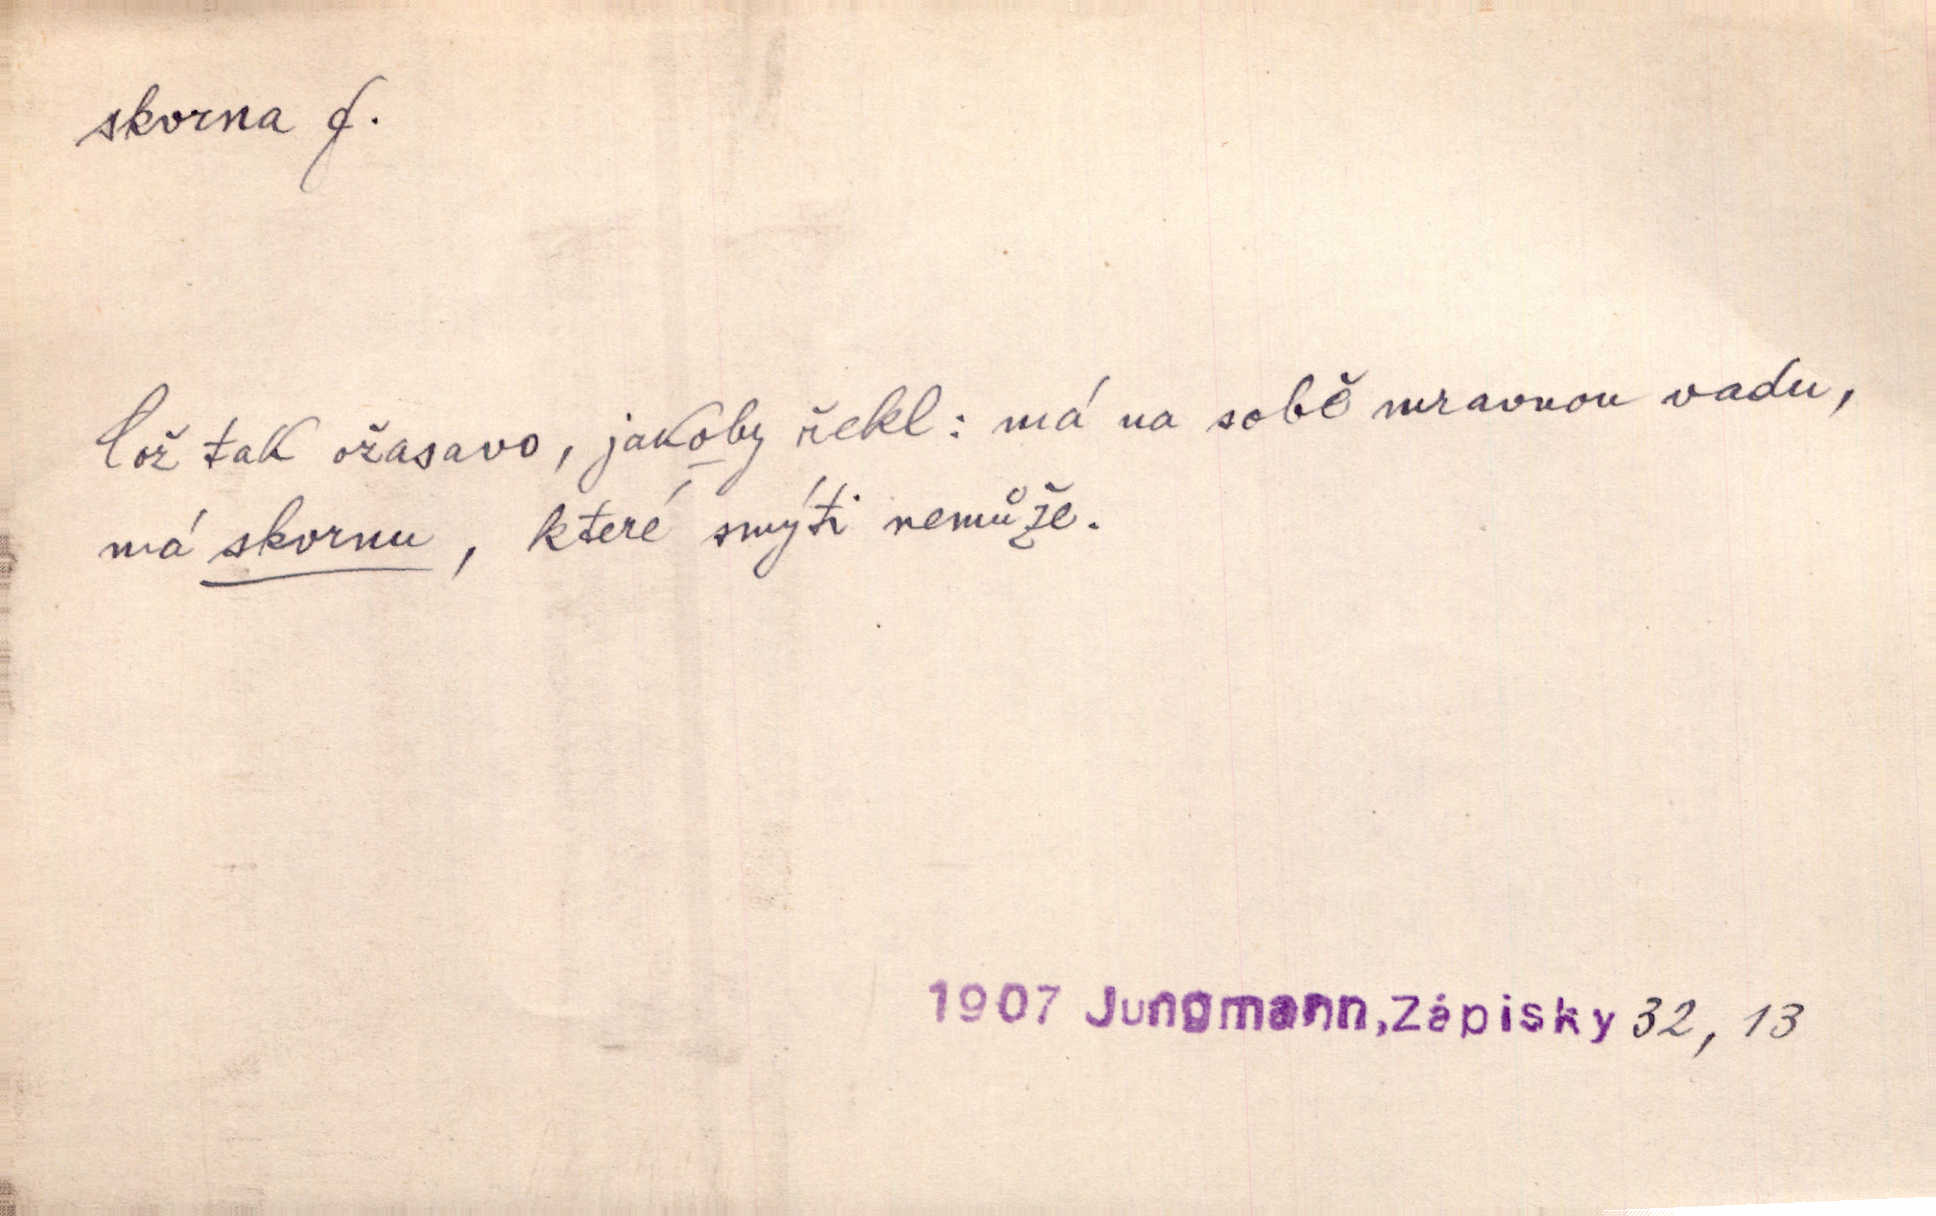 skvrna f.
Což tak ožasavo, jakoby řekl: má na sobě mravnou vadu,
má skvrnu, které smýti nemůže.
1907 Jungmann, Zápisky 32, 13